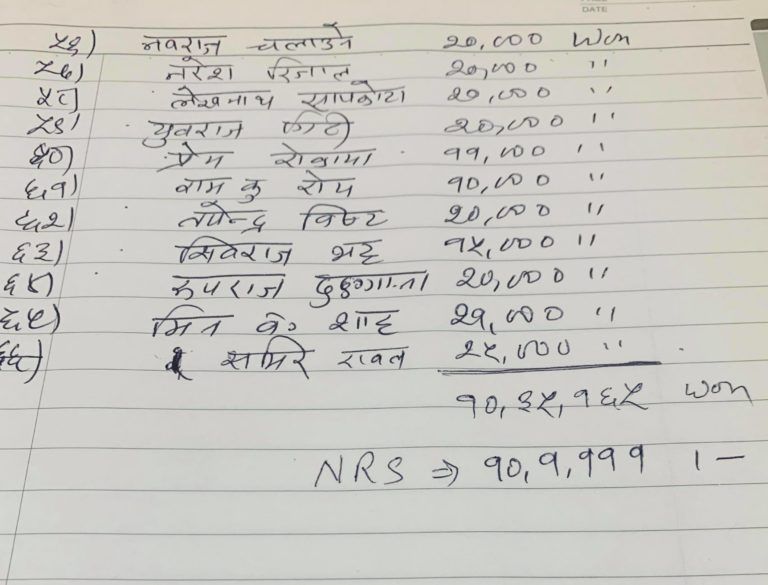 DATE
५६) नवराज चलाउने २०,००० Won
५७) नरेश रिजाल २०,००० "
५८) लेखनाथ सापकोटा २०,००० "
५९) युवराज गिरी २०,००० "
६०) प्रेम रोकाया ११,००० "
६१) राम कु रोय १०,००० "
६२) तपेन्द्र विष्ट २०,००० "
६३) सिवराज भट्ट १५,००० "
६४) रुपराज २०,००० "
६५) मित व० शाह २१,००० "
६६) समिर रावल २५,००० "
१०,३५,१६५ Won
NRS ⇒ १०,१,१११ ।—